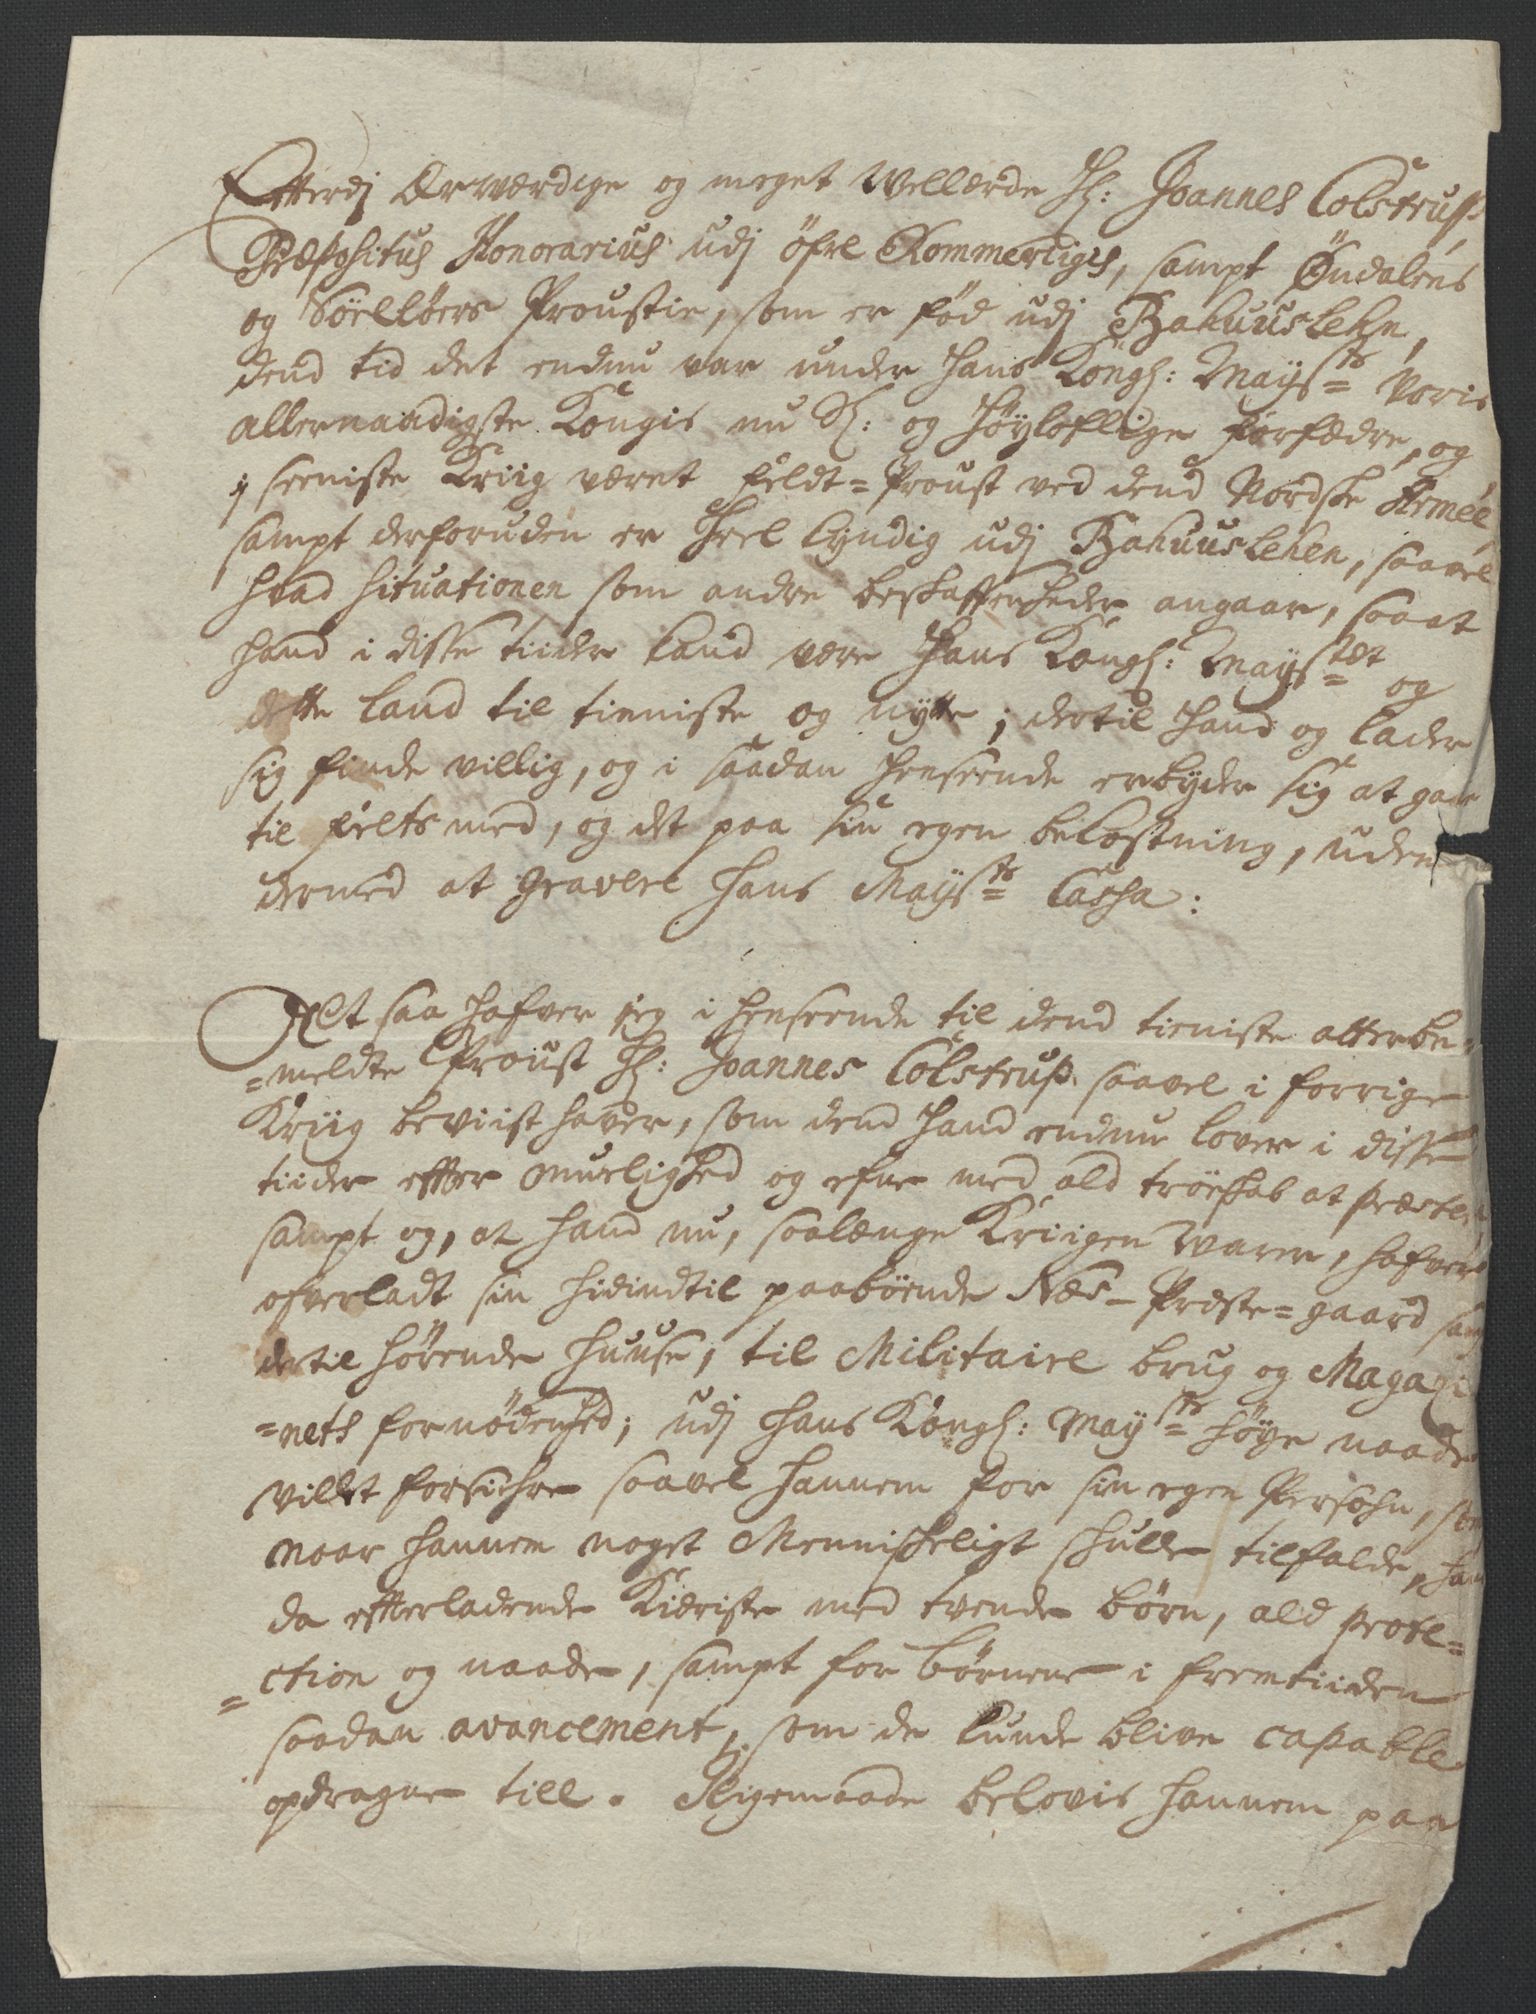 Efterdj Ærværdige og meget Wellærde Hr: Joannes Colstrup
Præpositus Honorarius udj öfre Rommeriges, sampt Öudalens
og Soelløers Proustie, som er fød udj Bahuuslehn,
dend tid det endnu var under Hans Kongl: Maysts Voris
allernaadigste Kongis nu Sl: og Høyloflige forfædre, og
j seeniste Kriig været feldt=Proust ved dend Nordske Armée
sampt desforuden er Heel kyndig udj Bahuuslehen, saavel
hvad Situationen som andre beskaffenheder angaar, saa at
hand i disse tiider kand være Hans Kongl: Maystæt og
dette land til tienniste og nytte; dertil Hand og lader
sig finde villig, og i saadan Henseende erbyder sig at gaae
til feltsmed, og det paa sin egen bekostning, uden
dermed at gravere Hans Maysts Cassa:
Alt saa Hafver jeg i Henseende til dend tieniste atterbe=
=meldte Proust Hr: Joannes Colstrup saavel i forrige
Kriig beviist haver, som dend Hand endnu lover i disse
tiider effter muelighed og efne med ald troeskab at præstere,
sampt og, at Hand nu, saalænge Kriigen warer, hafver
ofverladt sin hidindtil paaboende Næs-Præste=gaard samt
dertil hørende Huuse, til Militaire brug og Magazi
=nets fornødenhed; udj Hans Kongl: Maysts Høye naade
villet forsickre saavel hannem for sin egen Persohn, som
naar hannem noget Menniskeligt skulle tilfalde, hans
da efterladende Kieriste med tvende børn, ald prote=
=ction og naade, sampt for børnene i fremtiiden
saadan avancement, som de kunde blive capable
opdragne till. Ligemaade belovis hannem paa